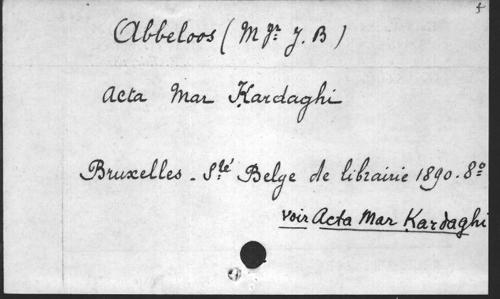 Abbeloos (Mgr J. B)
Acta Mar Kardaghi
Bruxelles - Sté Belge de librairie 1890. 8º
voir Acta Mar Kardaghi